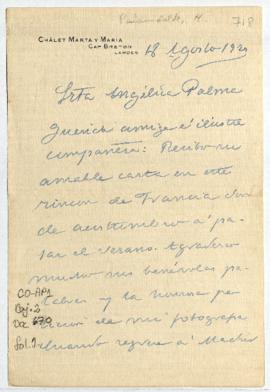 Peñaranda, H. 718
CHÂLET MARTA Y MARIA
CAP BRETON
LANDES
18 Agosto 1920
Srta Angélica Palma
Querida amiga é ilustre
compañera: Recibo su
amable carta en este
rincon de Francia don
de acostumbro á pa
sar el verano. Agradezco
mucho sus benévolas pa
labras y la honrosa pe
tición de mi fotografia
Cuando regrese á Madrid
CO-AP1
Caj. 2
Doc
Fol. 1